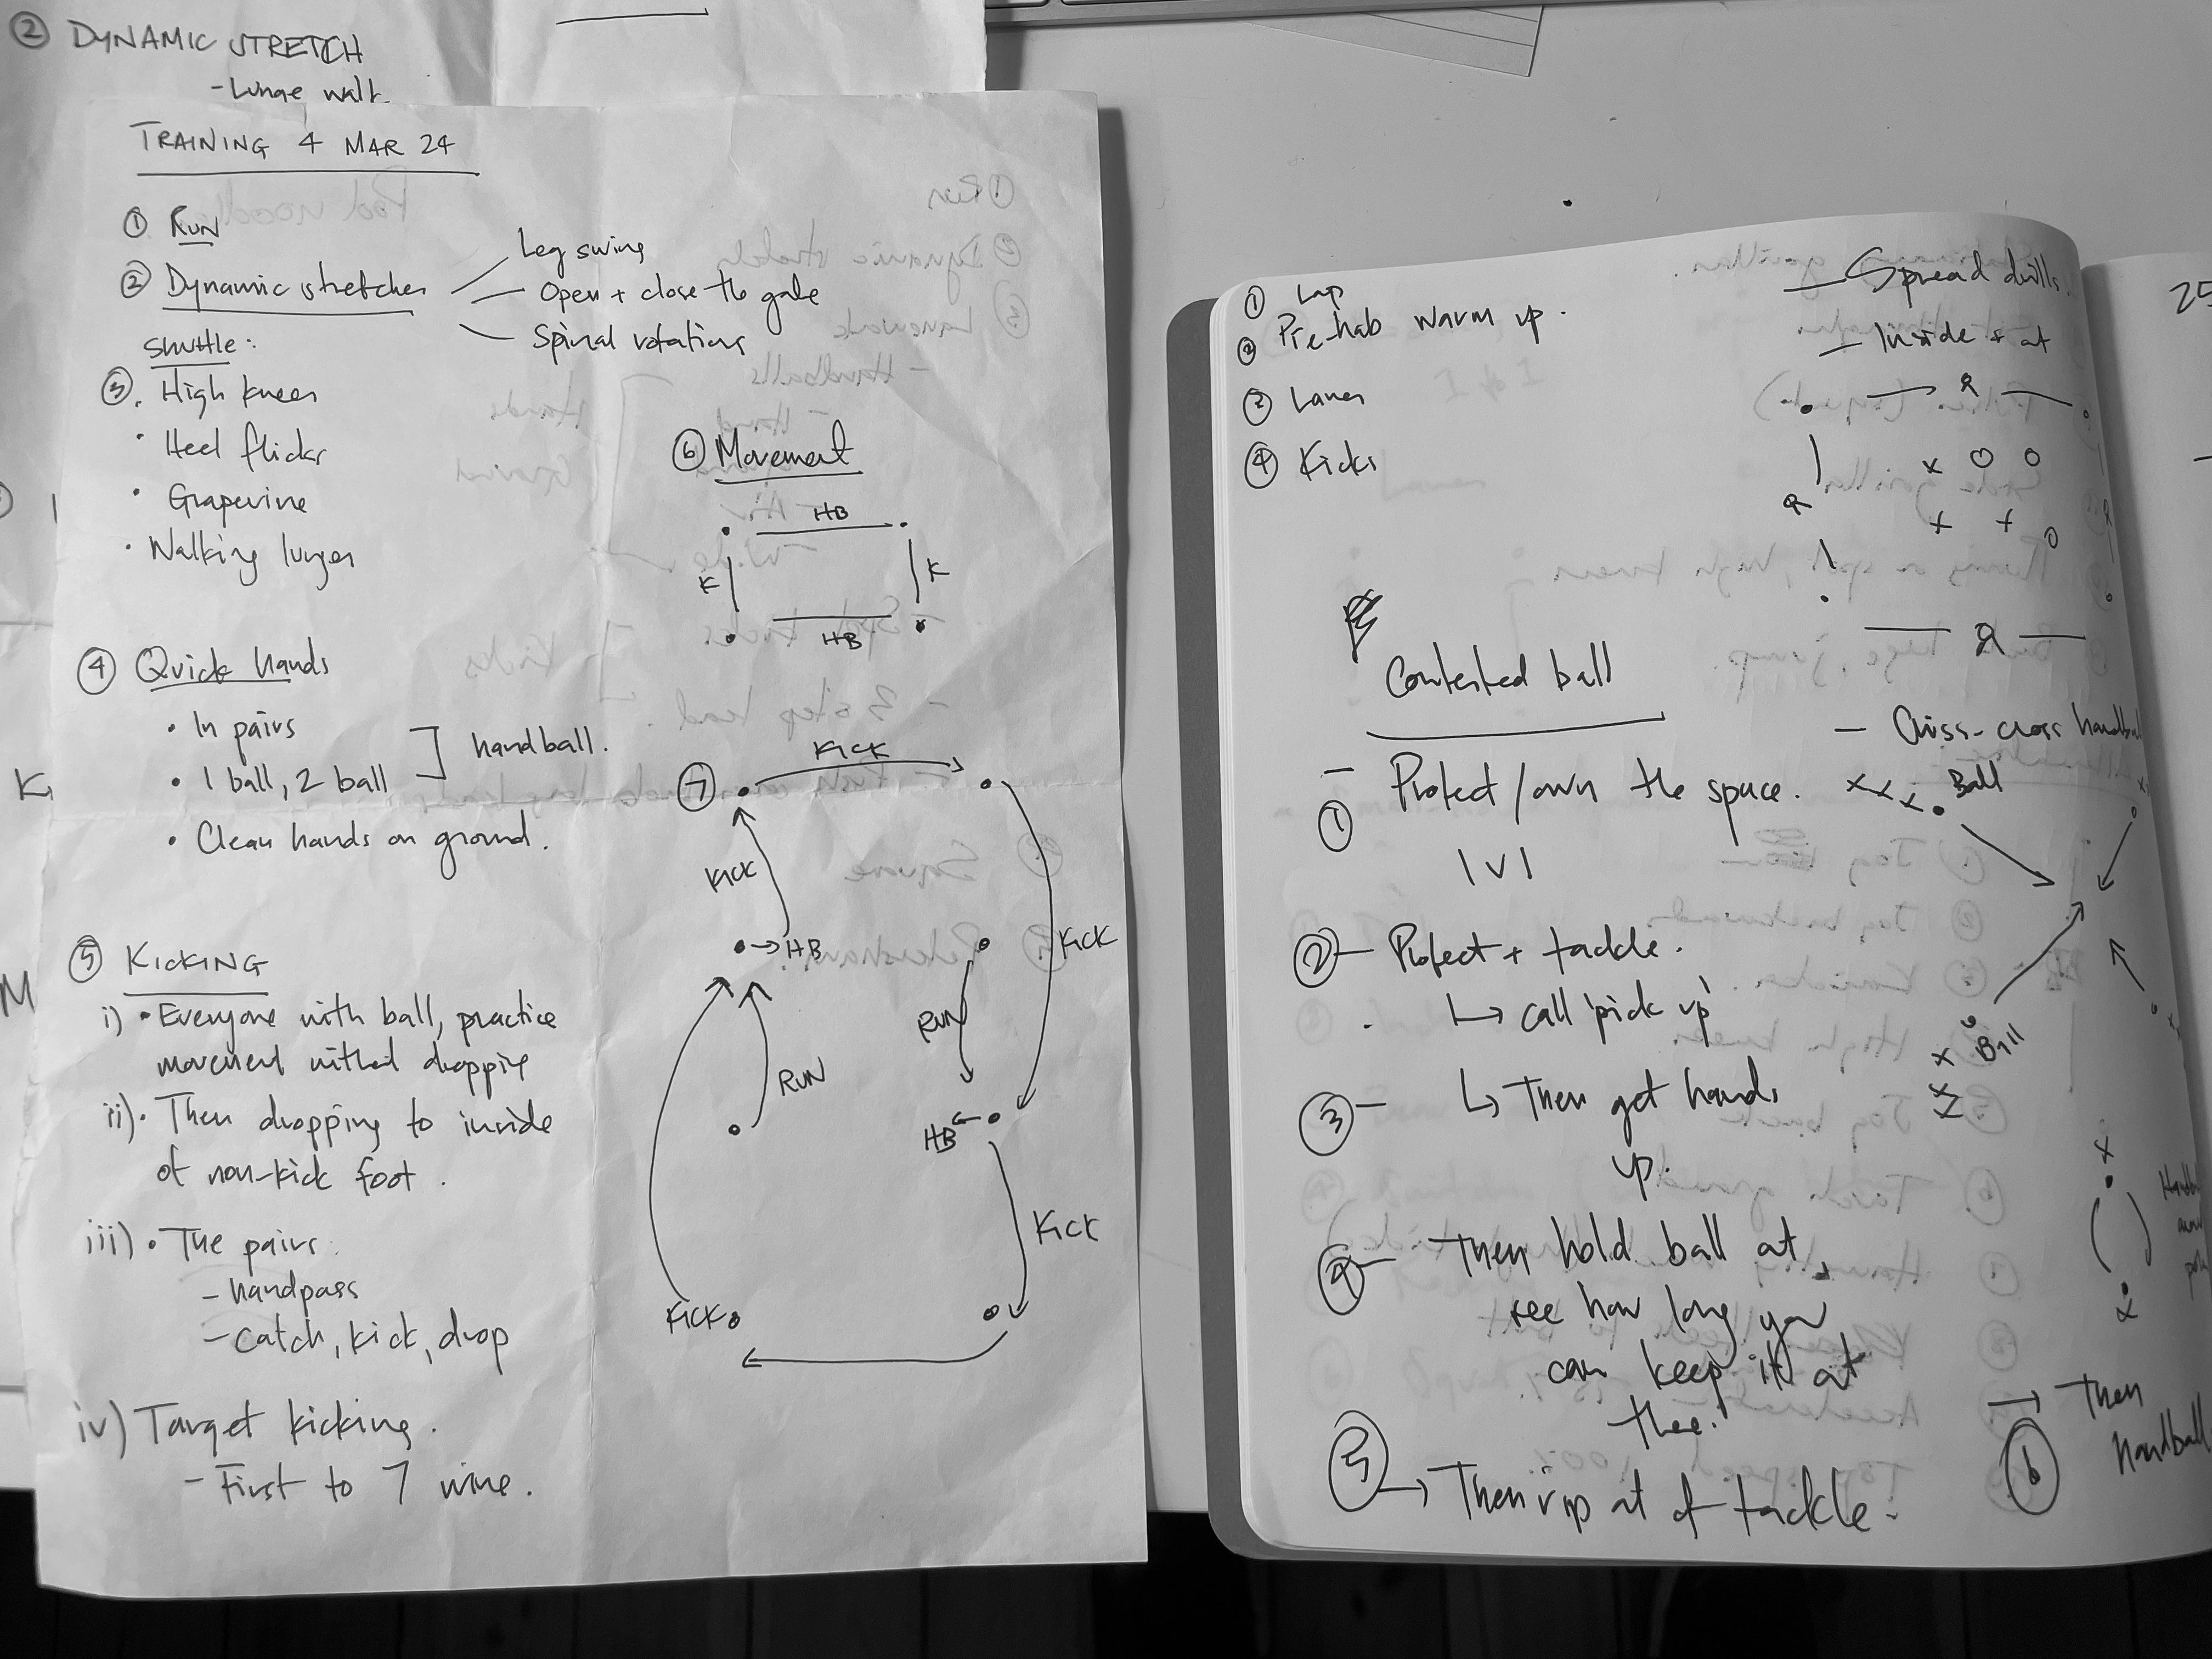 ② DYNAMIC STRETCH
- Lunge walk
TRAINING 4 MAR 24
① RUN
② Dynamic stretches
Leg swing
Open + close the gate
Spinal rotations
Shuttle:
③. High knees
· Heel flicks
· Grapevine
· Walking lunges
④ Quick hands
· In pairs
· 1 ball, 2 ball
] handball.
· Clean hands on ground.
⑤ KICKING
i) · Everyone with ball, practice
movement without dropping
ii) · Then dropping to inside
of non-kick foot.
iii) · The pairs:
- handpass
- catch, kick, drop
iv) Target kicking.
- First to 7 wins.
⑥ Movement
HB
K
K
HB
⑦
KICK
KICK
→ HB
KICK
RUN
RUN
HB ←
KICK
KICK
K
M
① Lap
② Pre-hab warm up.
③ Lanes
④ Kicks
- Spread drills.
- Inside + out
x O O
x x O
Contested ball
- Criss-cross handball
- Protect/own the space.
①
1v1
x x x Ball
②- Protect + tackle.
↳ call 'pick up'
③-
↳ Then get hands
up.
x Ball
x
x
④- Then hold ball out,
see how long you
can keep it out
there.
⑤
→ Then rip out of tackle.
x
x
→ Then
⑥ handball
25